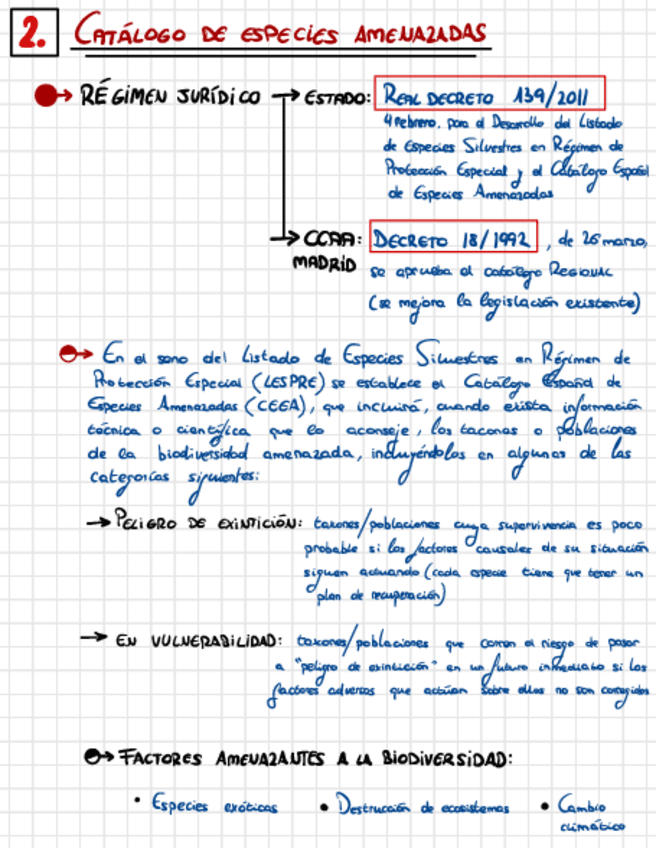 2. CATÁLOGO DE ESPECIES AMENAZADAS
RÉGIMEN JURÍDICO → ESTADO: REAL DECRETO 139/2011
4 febrero, para el Desarrollo del Listado
de Especies Silvestres en Régimen de
Protección Especial y el Catálogo Español
de Especies Amenazadas
→ CCAA: DECRETO 18/1992, de 26 marzo,
MADRID se aprueba el catálogo REGIONAL
(se mejora la legislación existente)
→ En el seno del Listado de Especies Silvestres en Régimen de
Protección Especial (LESPRE) se establece el Catálogo Español de
Especies Amenazadas (CEEA), que incluirá, cuando exista información
técnica o científica que lo aconseje, los taxones o poblaciones
de la biodiversidad amenazada, incluyéndolos en algunas de las
categorías siguientes:
→ PELIGRO DE EXINTICIÓN: taxones/poblaciones cuya supervivencia es poco
probable si los factores causales de su situación
siguen actuando (cada especie tiene que tener un
plan de recuperación)
→ EN VULNERABILIDAD: taxones/poblaciones que corren el riesgo de pasar
a "peligro de exintición" en un futuro inmediato si los
factores adversos que actúan sobre ellos no son corregidos
→ FACTORES AMENAZANTES A LA BIODIVERSIDAD:
• Especies exóticas • Destrucción de ecosistemas • Cambio
climático